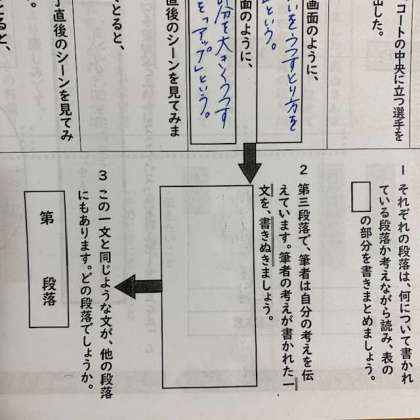 コートの中央に立つ選手を
出した。
画面のように、
いをうつすとり方を
という。
面のように、
分を大きくうつす
を「アップ」という。
直後のシーンを見てみま
とると、
直後のシーンを見てみ
とると、
1 それぞれの段落は、何について書かれ
ている段落か考えながら読み、表の
の部分を書きまとめましょう。
2 第三段落で、筆者は自分の考えを伝
えています。筆者の考えが書かれた一
文を、書きぬきましょう。
3 この一文と同じような文が、他の段落
にもあります。どの段落でしょうか。
第 段落